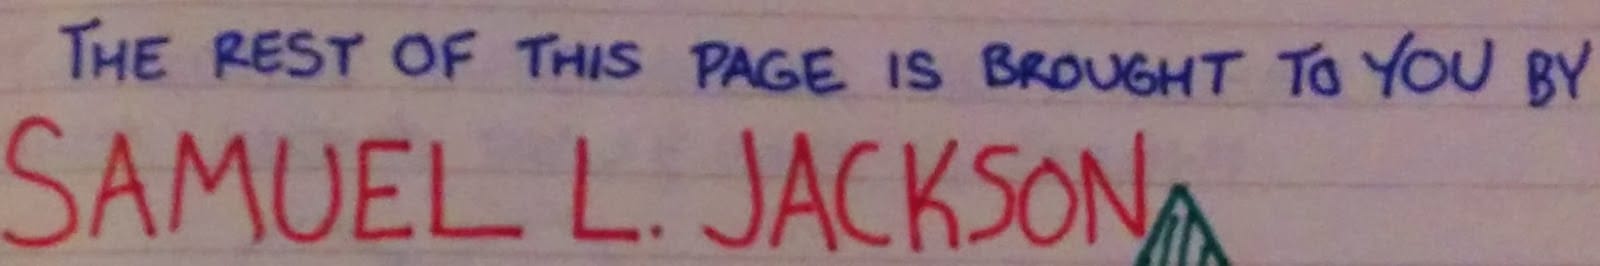 THE REST OF THIS PAGE IS BROUGHT TO YOU BY
SAMUEL L. JACKSON